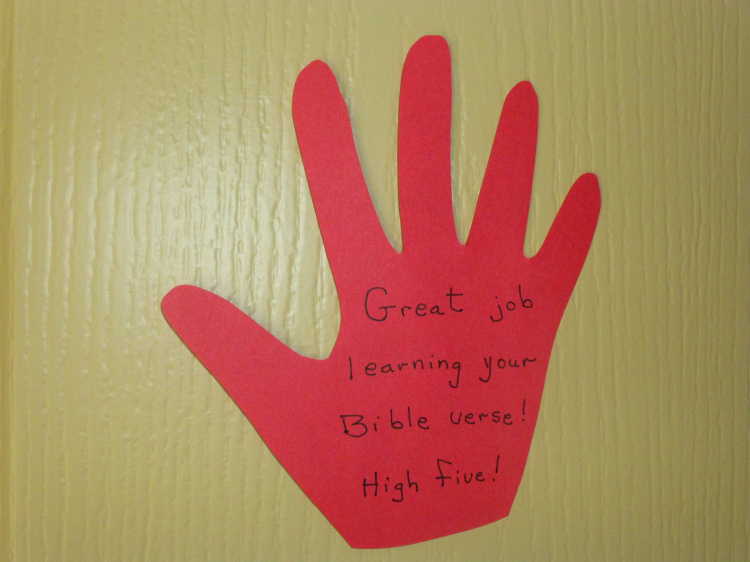 Great job
learning your
Bible verse!
High five!